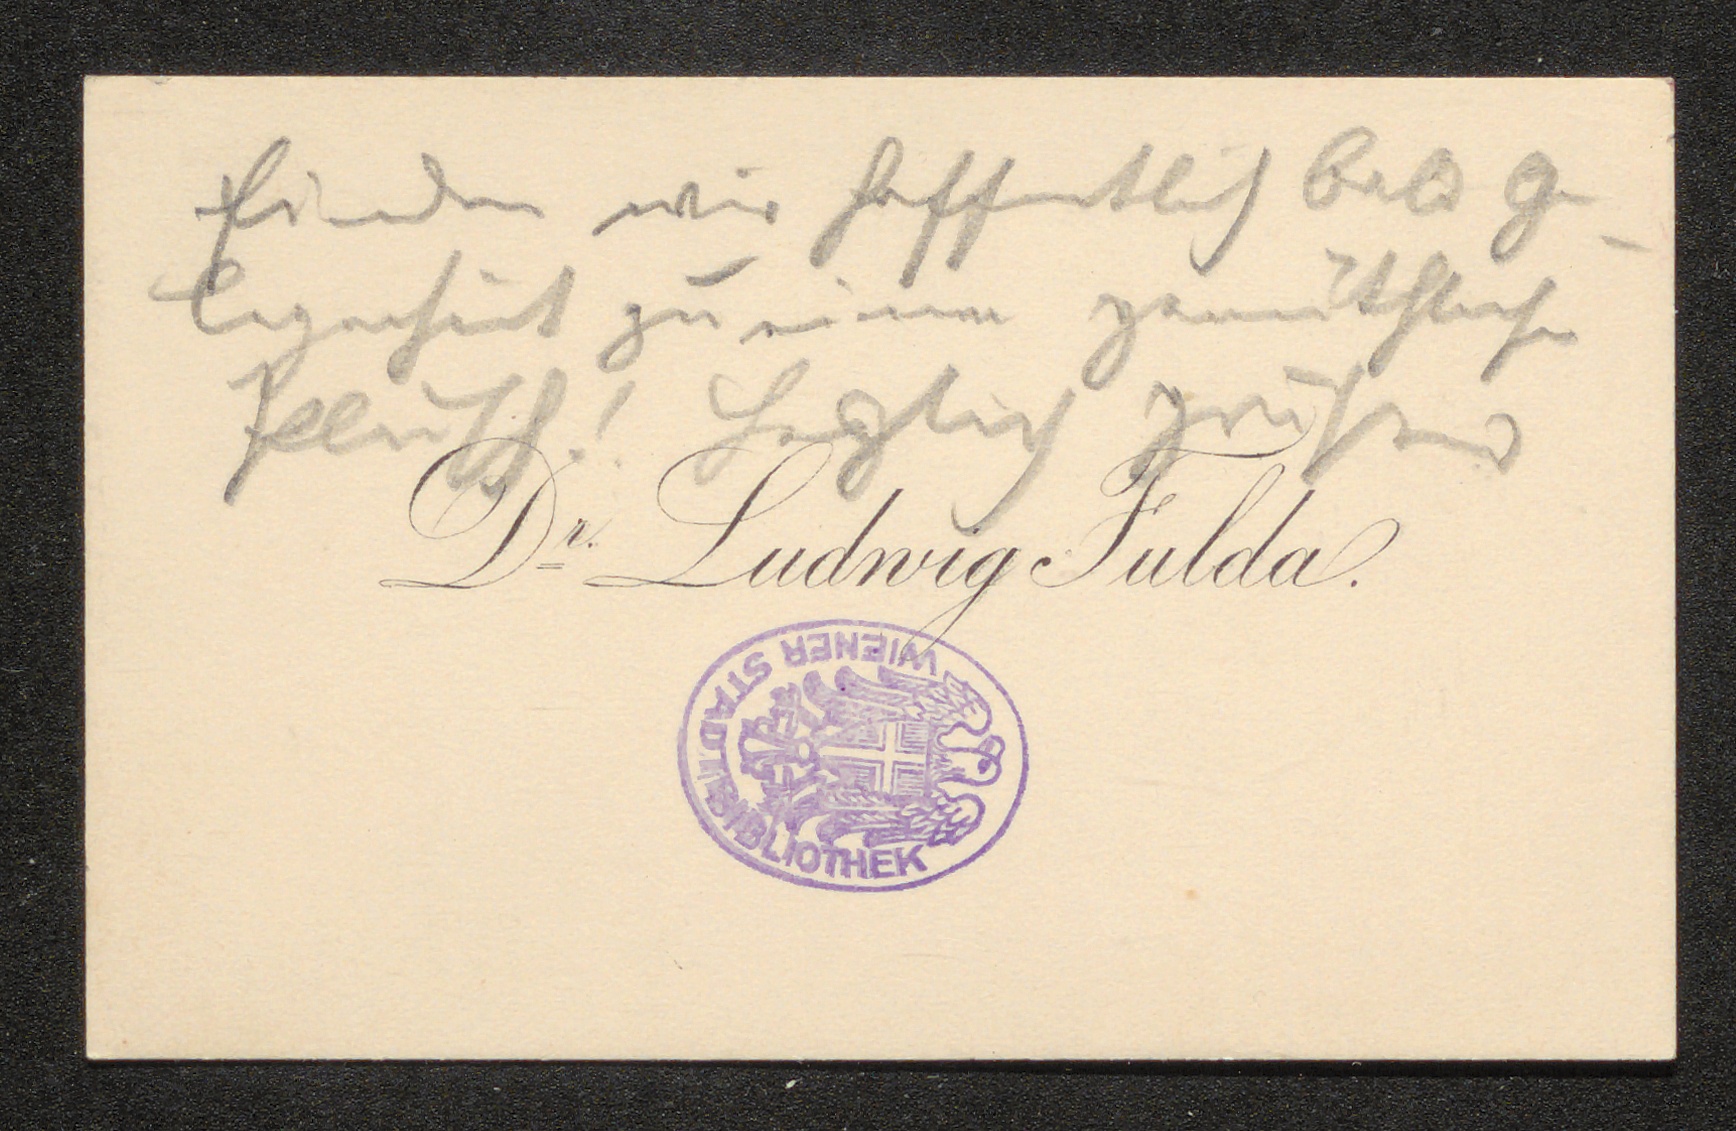 finden wir hoffentlich bald Ge-
legenheit zu einem gemüthlichen
Plausch! Herzlich grüßend
Dr. Ludwig Fulda.
WIENER STADTBIBLIOTHEK